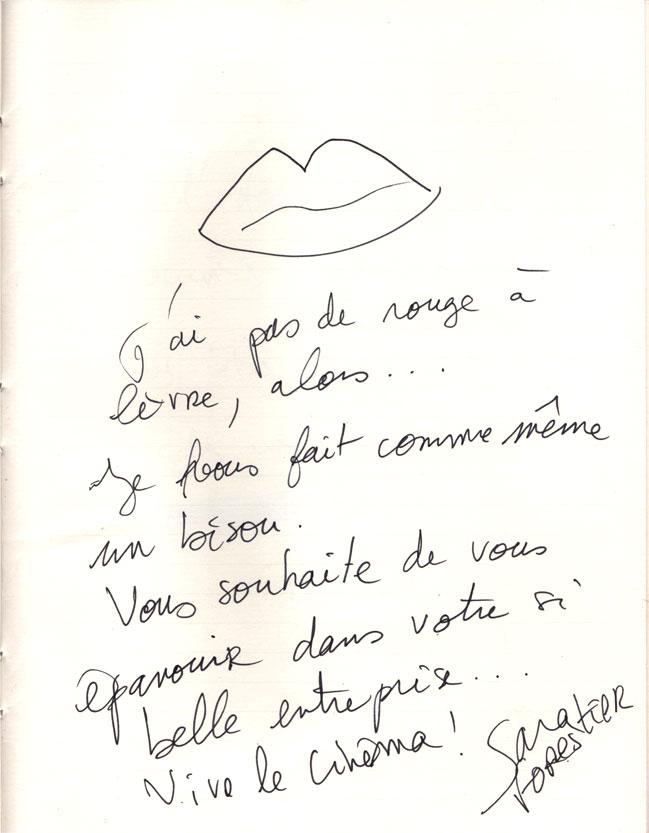 J'ai pas de rouge à
lèvre, alors...
Je vous fait comme même
un bisou.
Vous souhaite de vous
épanouir dans votre si
belle entreprise...
Vive le cinéma !
Sara
Forestier